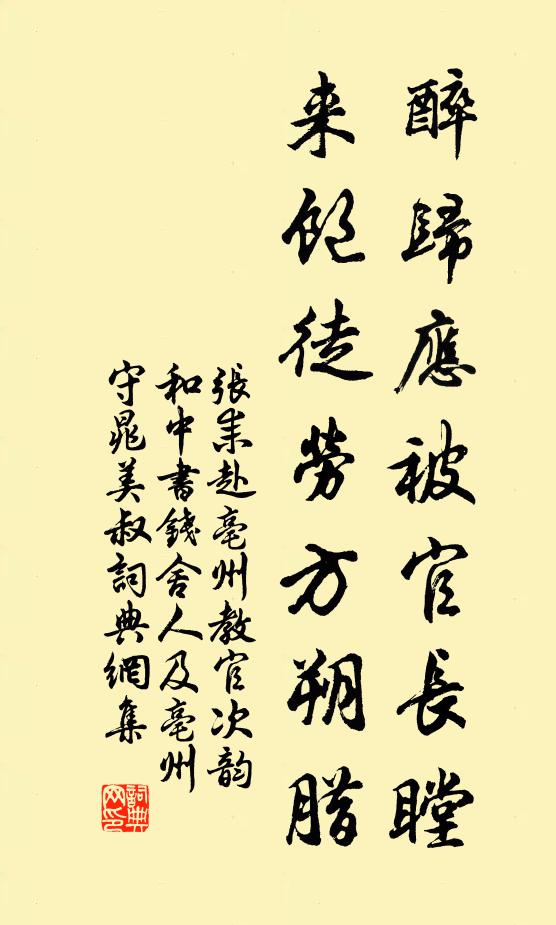 醉歸應被官長瞠
来飽徒勞方朔腊
張耒赴亳州教官次韵
和中書錢舍人及亳州
守晁美叔詞典網集
詞典
网印